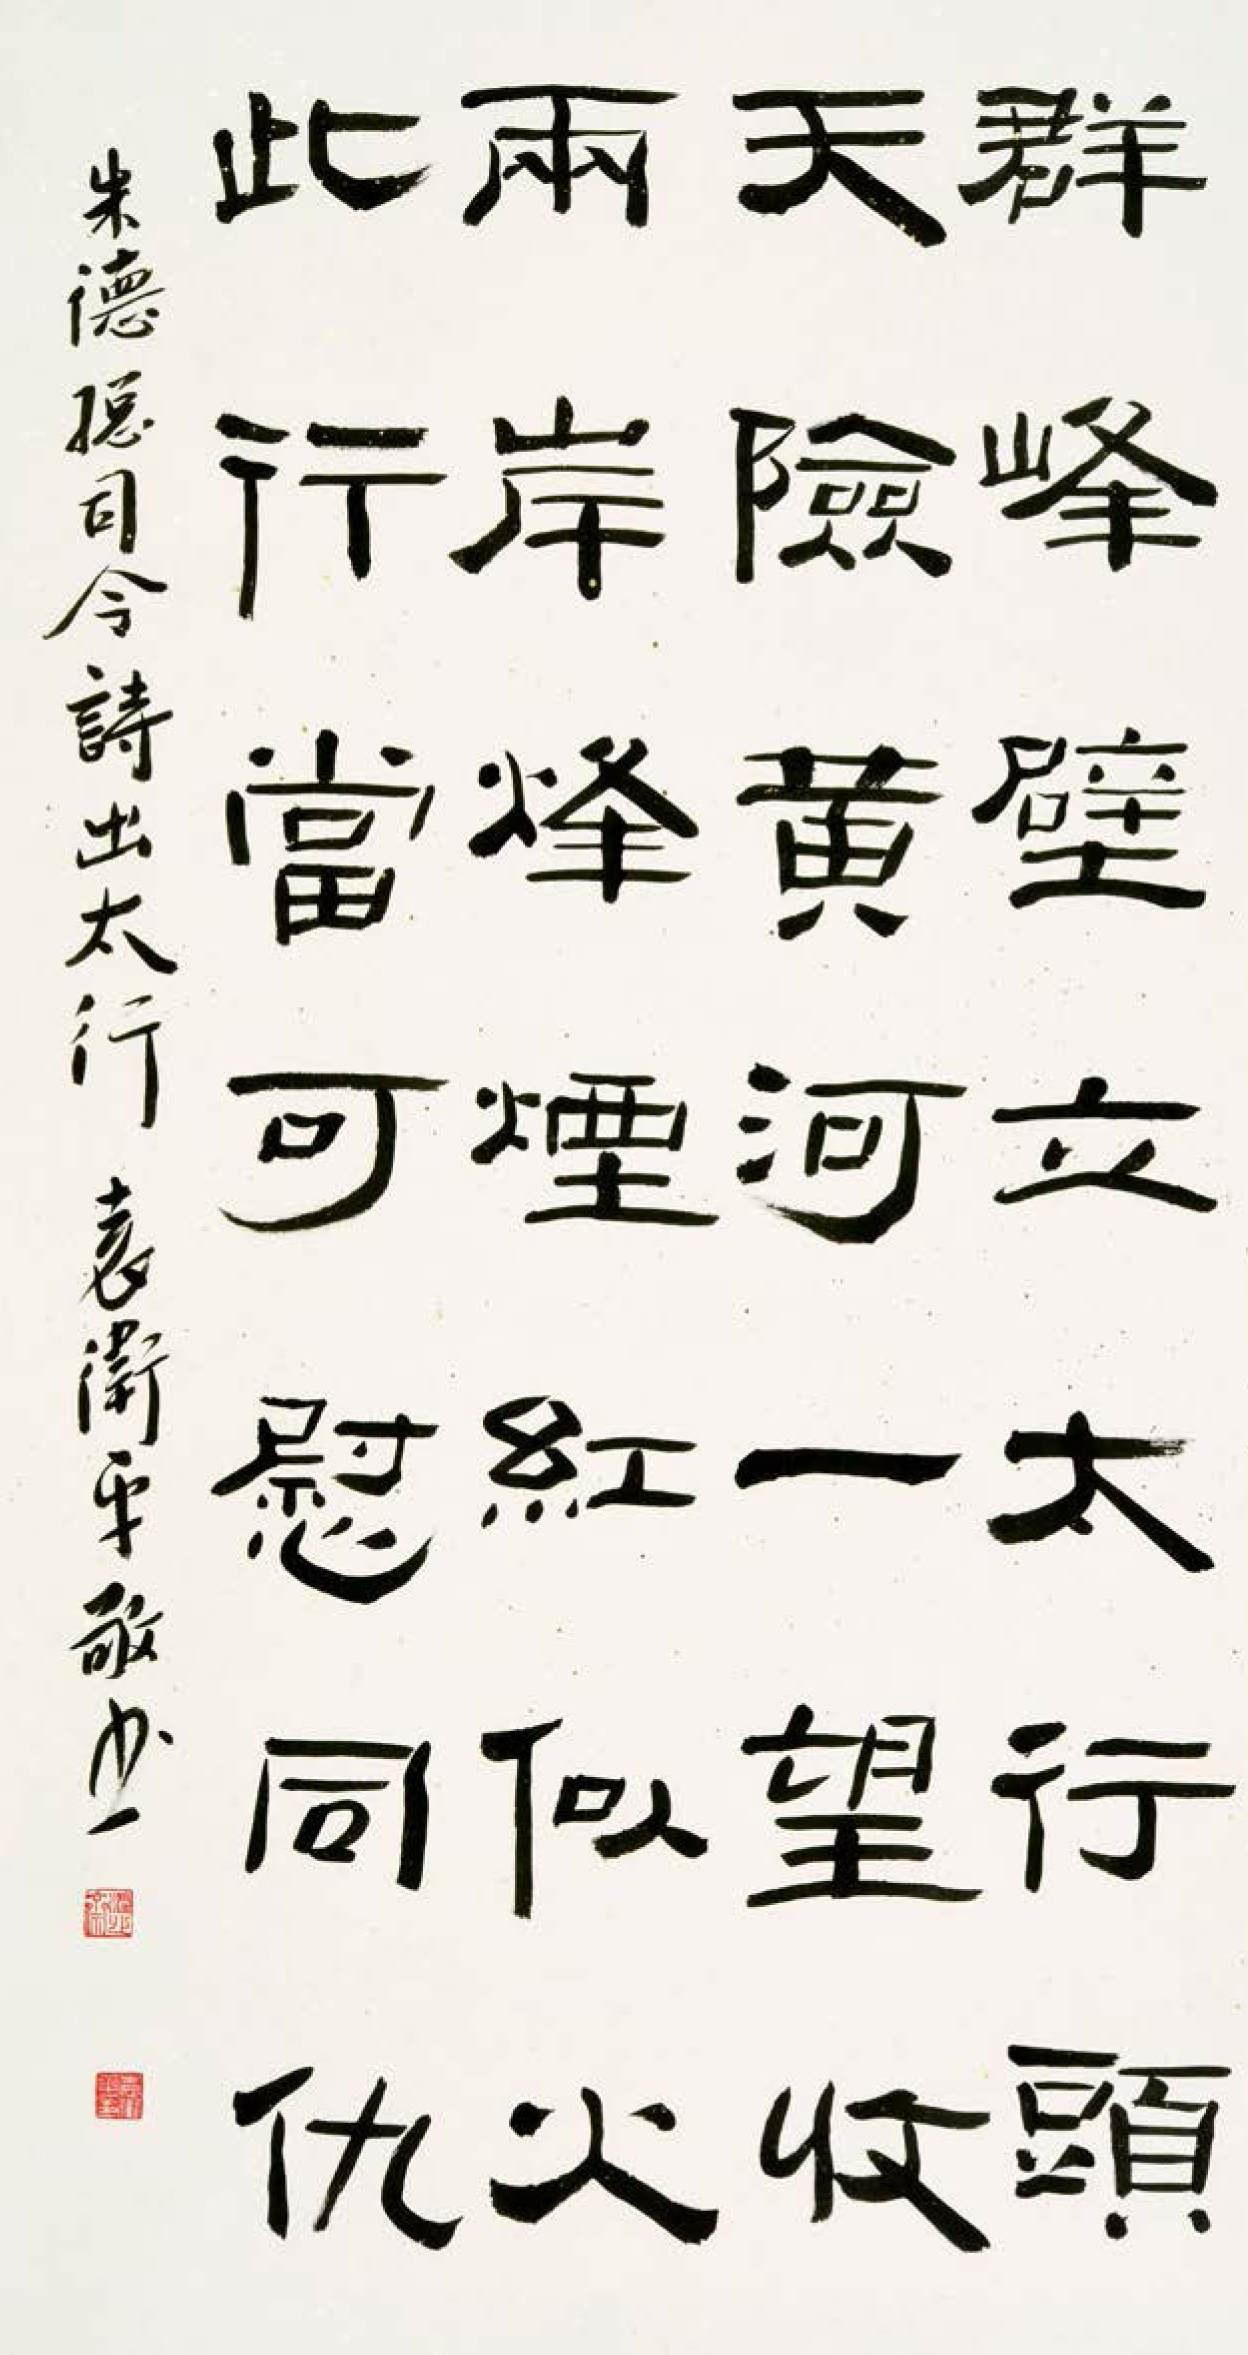 群峰壁立太行頭
天險黄河一望收
兩岸烽煙紅似火
此行當可慰同仇
朱德總司令詩出太行 袁衛平敬书